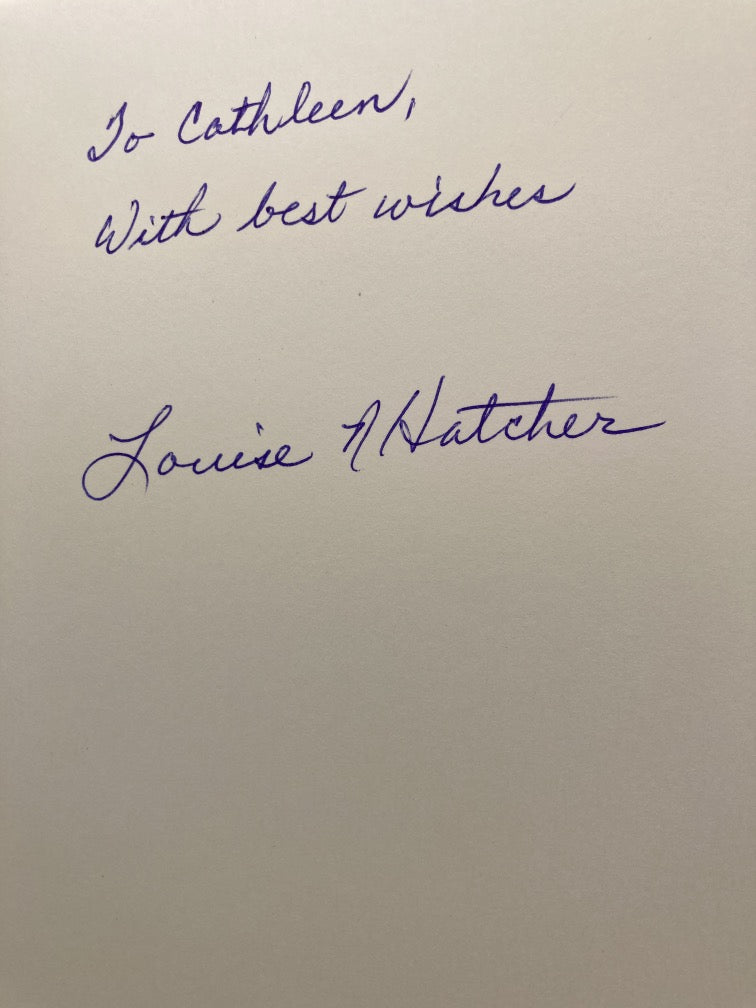 To Cathleen,
With best wishes
Louise N Hatcher